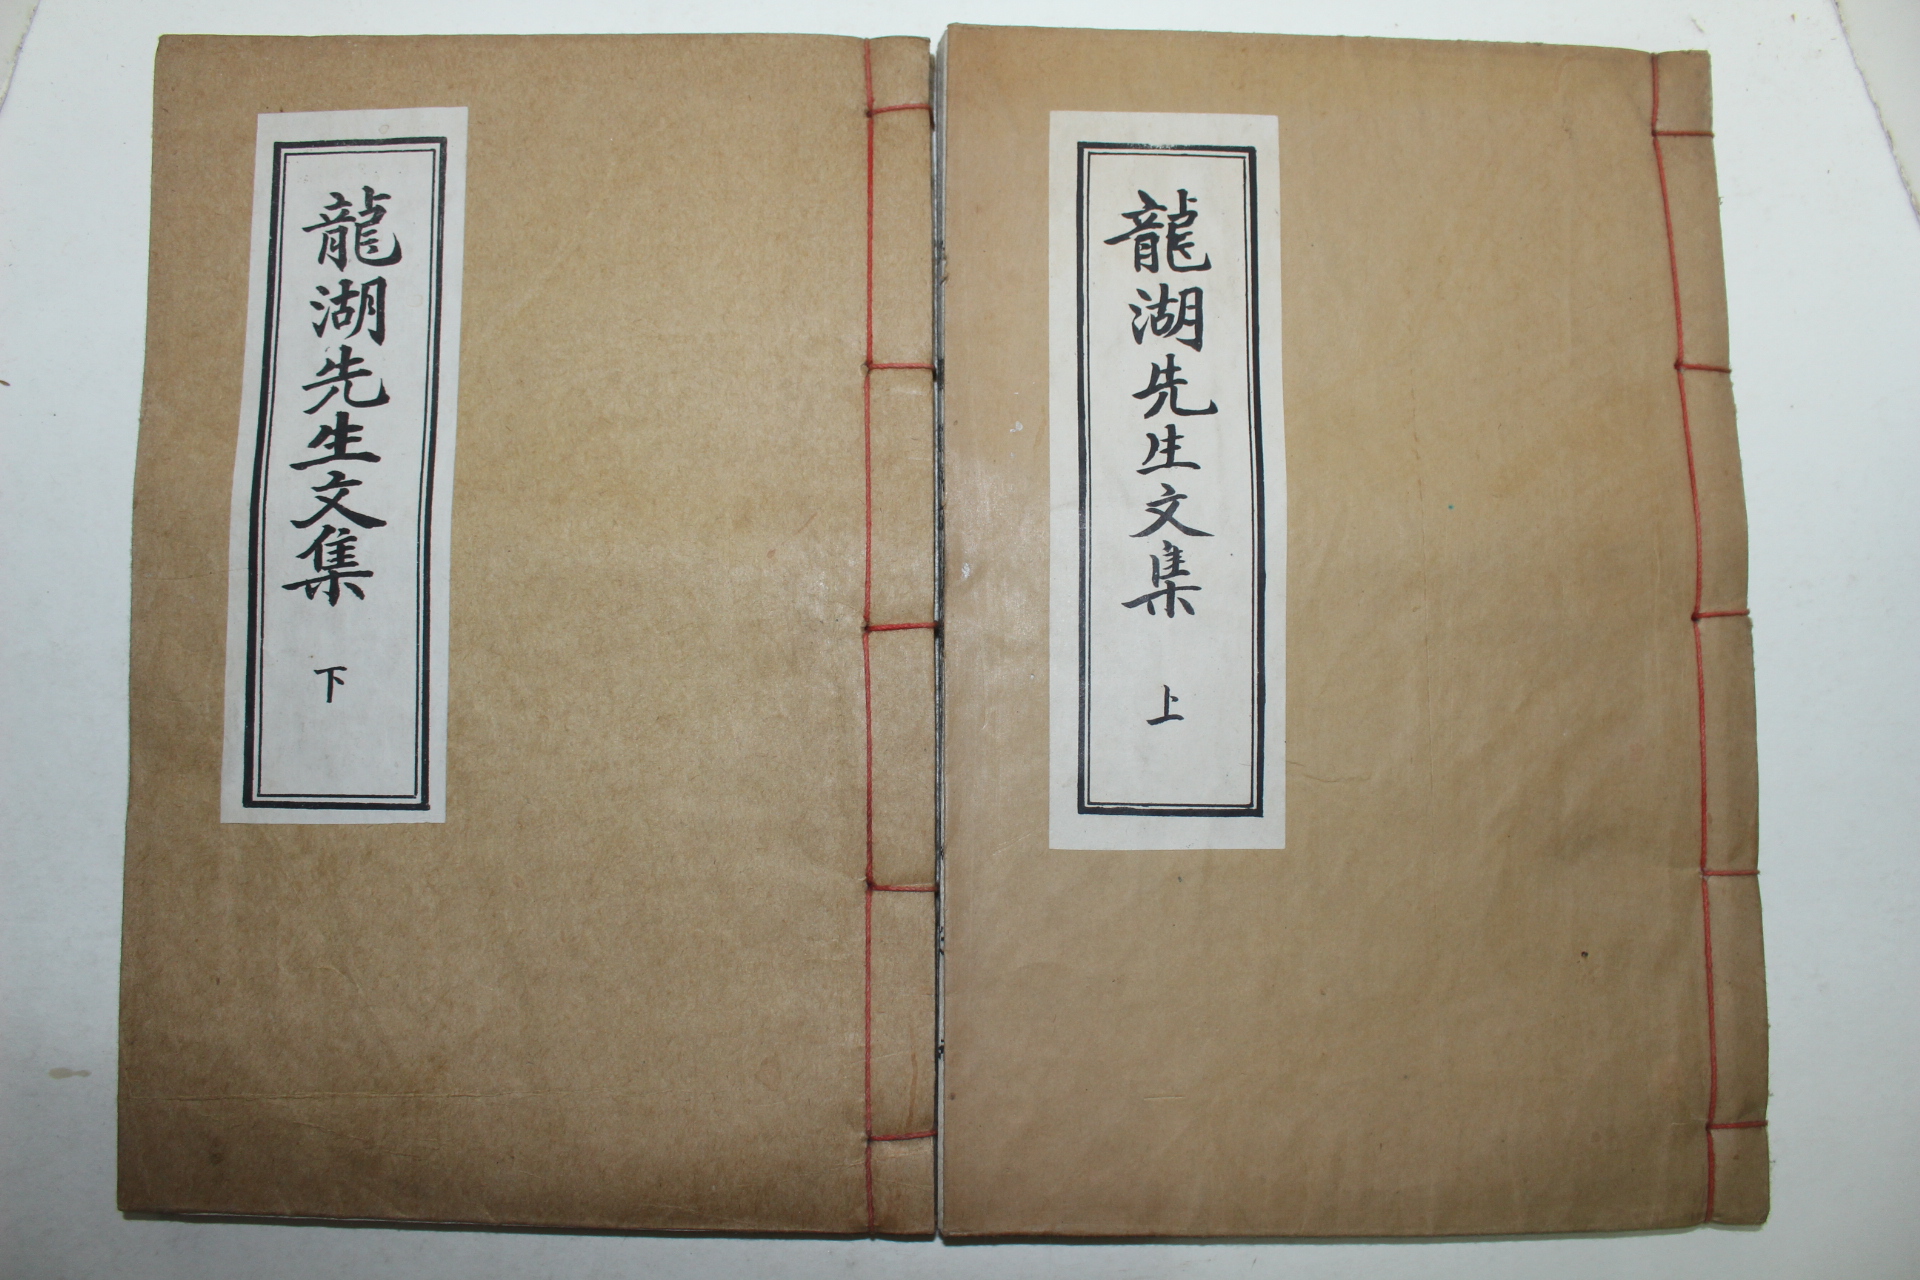 龍湖先生文集 上
龍湖先生文集 下